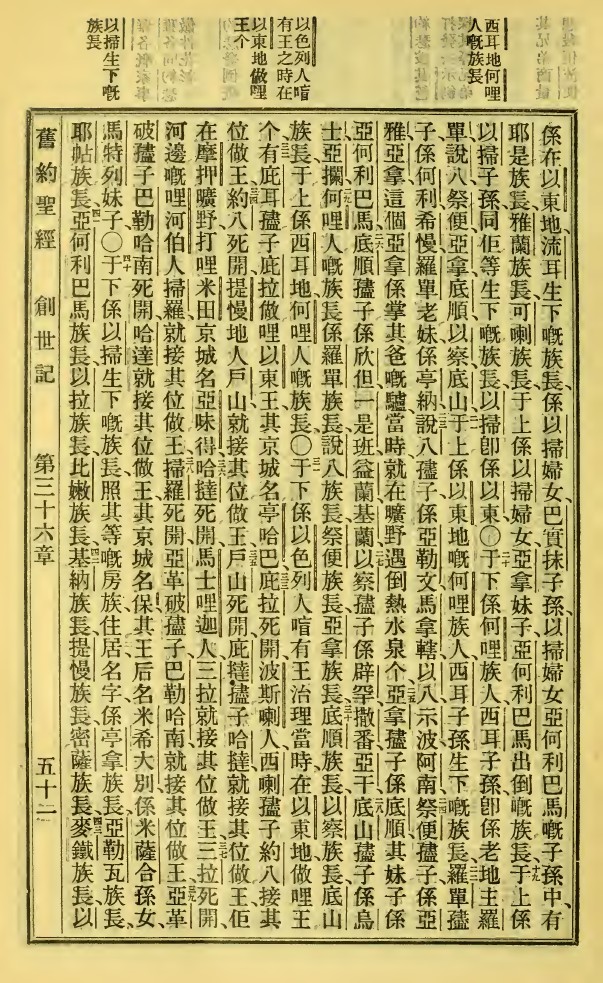 西耳地何哩
人嘅族長
以色列人喑
有王之時在
以東地做哩
王个
以掃生下嘅
族長
係在以東地流耳生下嘅族長、係以掃婦女巴實抹子孫、以掃婦女亞何利巴馬嘅子孫中、有
耶是族長、雅蘭族長、可喇族長、于上係以掃婦女亞拿妹子亞何利巴馬出倒嘅族長、于上係
以掃子孫同佢等生下嘅族長、以掃卽係以東〇于下係何哩族人西耳子孫卽係老地主羅
單、說八、祭便、亞拿、底順、以察、底山、于上係以東地嘅何哩族人西耳子孫生下嘅族長、羅單孻
子係何利、希慢、羅單老妹係亭納、說八孻子係亞勒文、馬拿轄、以八、示波、阿南、祭便孻子、係亞
雅、亞拿、這個亞拿係掌其爸嘅驢、當時就在曠野遇倒熱水泉个、亞拿孻子係底順、其妹子係
亞何利巴馬、底順孻子係欣但、一是班、益蘭、基蘭、以察孻子係辟罕、撒番、亞干、底山孻子係烏
士、亞攔、何哩人嘅族長、係羅單族長、說八族長、祭便族長、亞拿族長、底順族長、以察族長、底山
族長、于上係西耳地何哩人嘅族長〇于下係以色列人喑有王治理當時在以東地做哩王
个、有庇耳孻子庇拉做哩以東王、其京城名亭哈巴、庇拉死開、波斯喇人西喇孻子約八接其
位做王、約八死開、提慢地人戶山就接其位做王、戶山死開、庇撻孻子哈撻就接其位做王、佢
在摩押曠野打哩米田、京城名亞味得、哈撻死開、馬士哩迦人三拉就接其位做王、三拉死開、
河邊嘅哩河伯人掃羅就接其位做王、掃羅死開、亞革破孻子巴勒哈南就接其位做王、亞革
破孻子巴勒哈南死開、哈達就接其位做王、其京城名保、其王后名米希大別、係米薩合孫女、
馬特列妹子〇于下係以掃生下嘅族長、照其等嘅房族住居名字、係亭拿族長、亞勒瓦族長、
耶帖族長、亞何利巴馬族長、以拉族長、比嫩族長、基納族長、提慢族長、密薩族長、麥鐵族長、以
舊約聖經 創世記 第三十六章 五十二